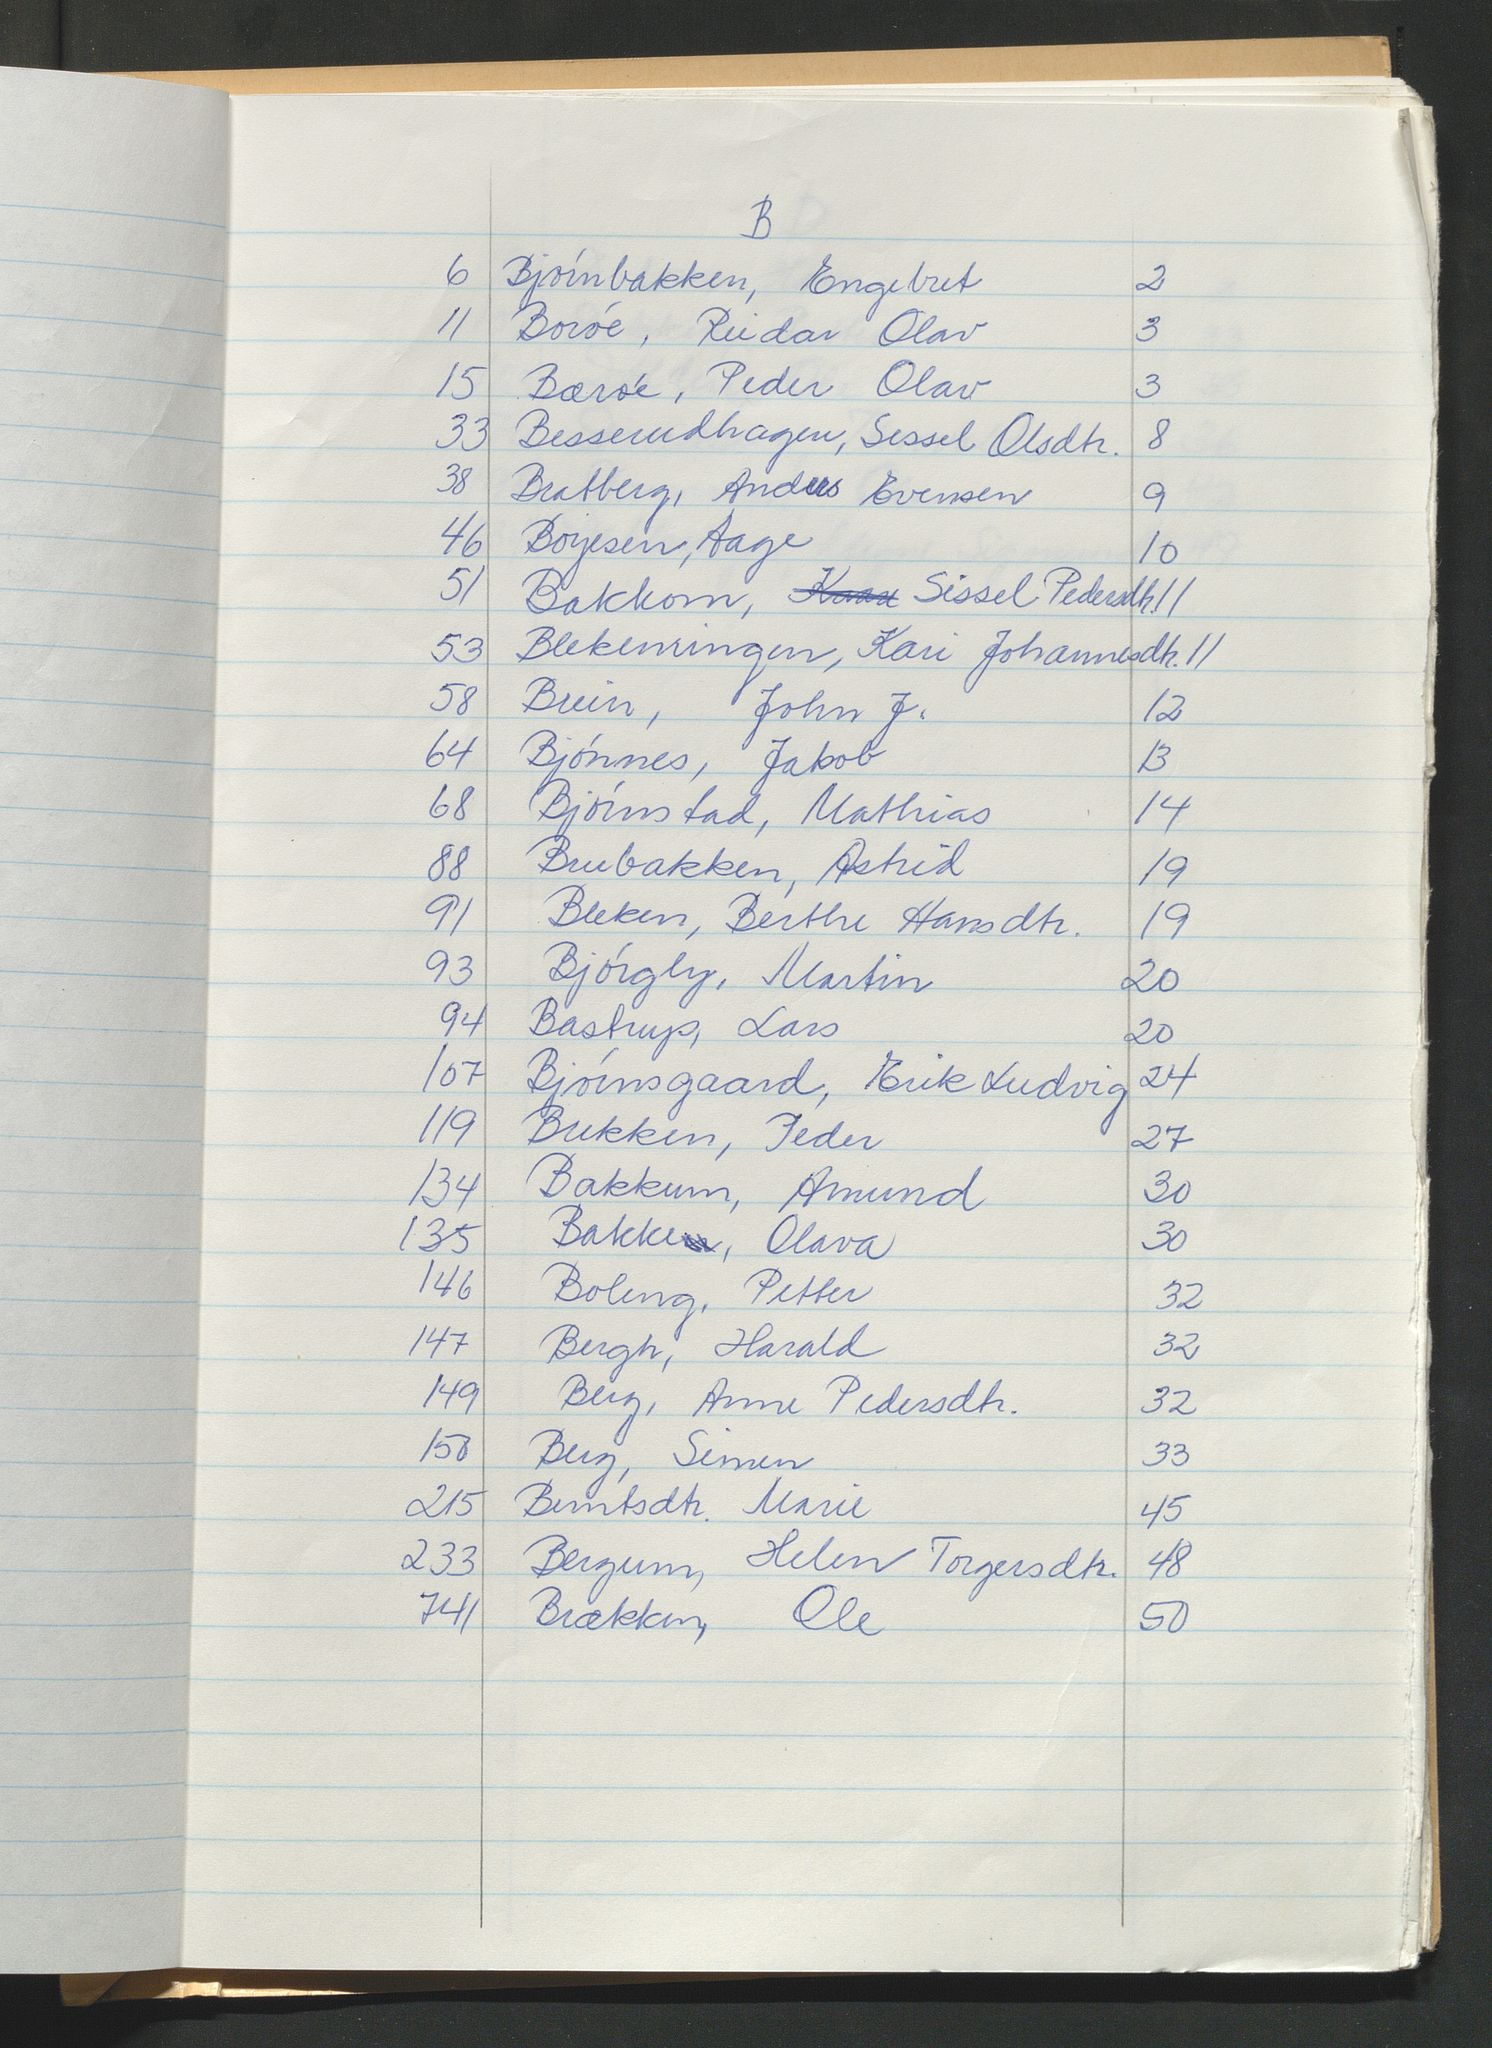 B
6 Bjørnbakken, Engebret 2
11 Borøe, Reidar Olav 3
15 Bærøe, Peder Olav 3
33 Besserudhagen, Sissel Olsdtr. 8
38 Bratberg, Anders Evensen 9
46 Borjesen, Aage 10
51 Bakkom, Sissel Pedersdtr. 11
53 Blekenringen, Kari Johannesdtr. 11
58 Brein, John J. 12
64 Bjønnes, Jakob 13
68 Bjørnstad, Mathias 14
88 Brubakken, Astrid 19
91 Bleken, Berthe Hansdtr. 19
93 Bjørgly, Martin 20
94 Bastrup, Lars 20
107 Bjørnsgaard, Erik Ludvig 24
119 Brekken, Peder 27
134 Bakkum, Amund 30
135 Bakke, Olava 30
146 Boleng, Petter 32
147 Bergh, Harald 32
149 Berg, Anne Pedersdtr. 32
150 Berg, Simen 33
215 Berntsdtr. Marie 45
233 Bergum, Helen Torgersdtr. 48
741 Brækken, Ole 50